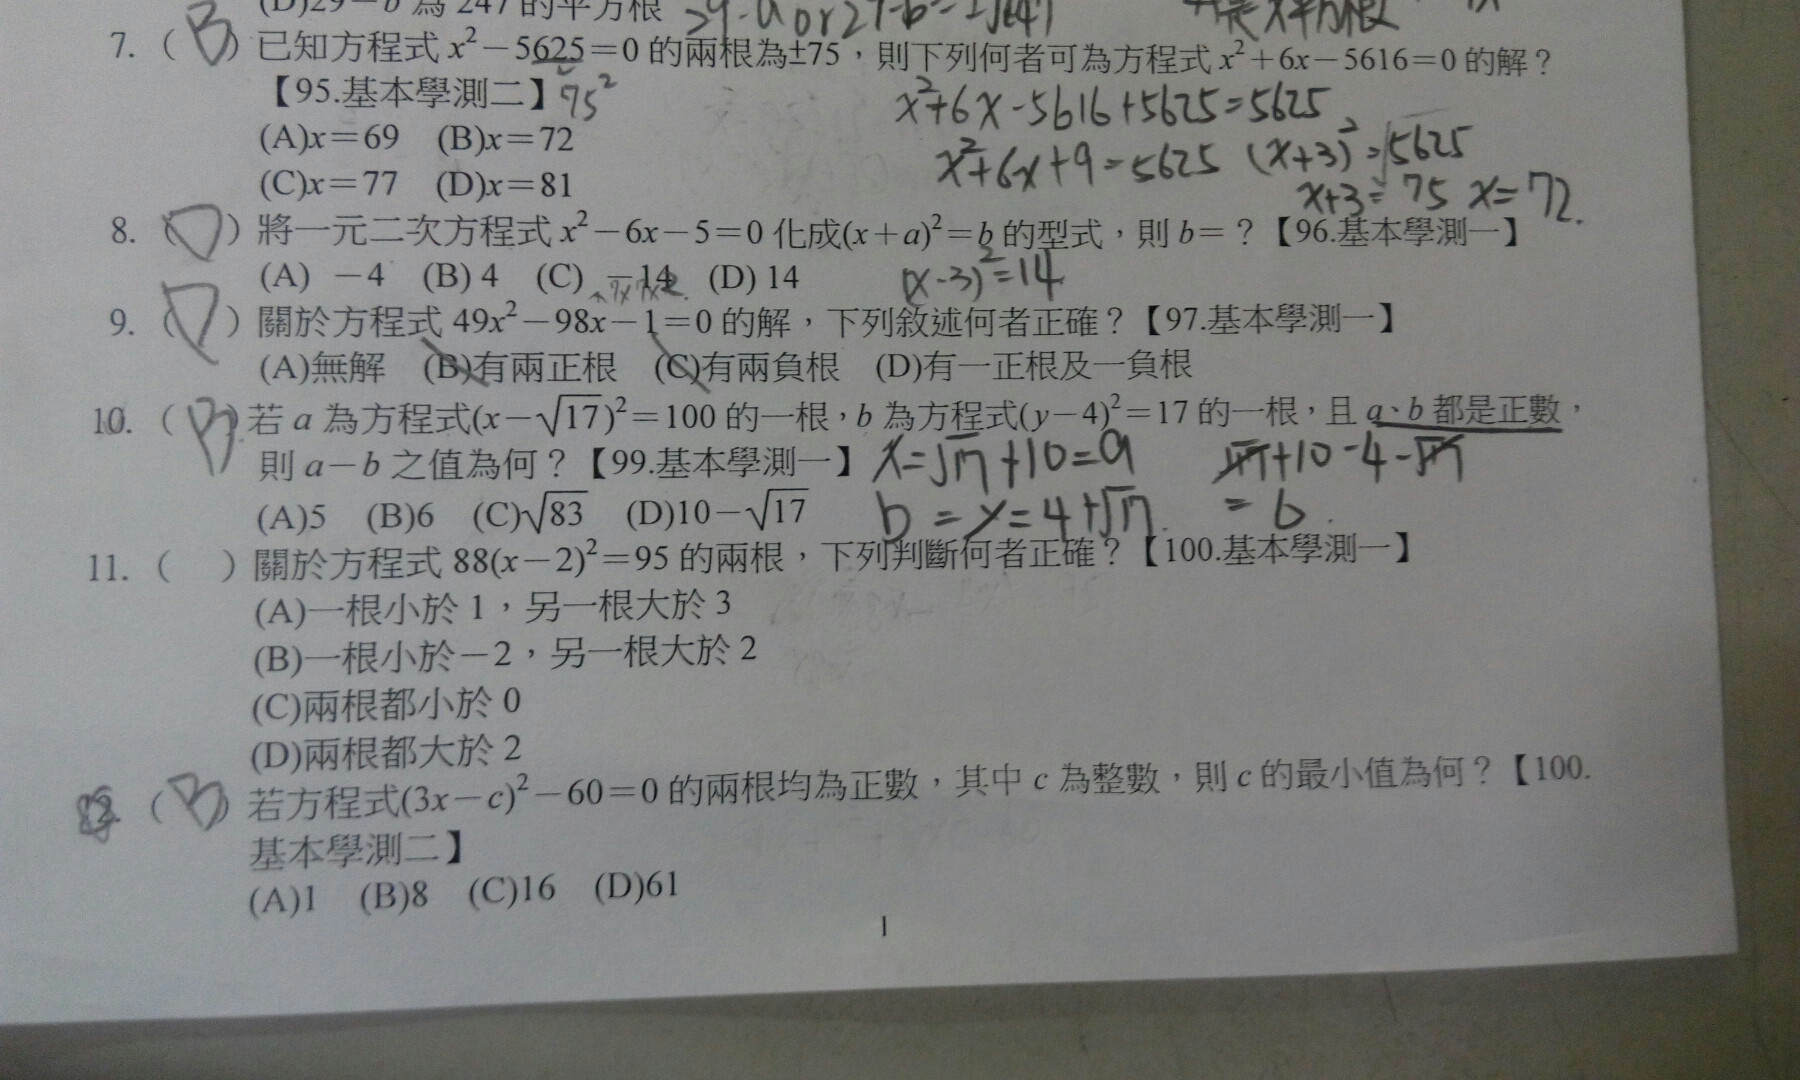 (D)29－b 為 247 的平方根
7. ( B ) 已知方程式 x²－5625＝0 的兩根為±75，則下列何者可為方程式 x²＋6x－5616＝0 的解？
【95.基本學測二】 75²
x²+6x-5616+5625=5625
(A)x＝69 (B)x＝72
x²+6x+9=5625 (x+3)²=√5625
(C)x＝77 (D)x＝81
x+3=75 x=72.
8. ( D ) 將一元二次方程式 x²－6x－5＝0 化成(x＋a)²＝b 的型式，則 b＝？【96.基本學測一】
(A) －4 (B) 4 (C) －14 (D) 14 (x-3)²=14
9. ( D ) 關於方程式 49x²－98x－1＝0 的解，下列敘述何者正確？【97.基本學測一】
(A)無解 (B)有兩正根 (C)有兩負根 (D)有一正根及一負根
10. ( B ) 若 a 為方程式(x－√17)²＝100 的一根，b 為方程式(y－4)²＝17 的一根，且 a、b 都是正數，
則 a－b 之值為何？【99.基本學測一】 x=√17+10=a √17+10-4-√17
(A)5 (B)6 (C)√83 (D)10－√17 b=y=4+√17. =6.
11. ( ) 關於方程式 88(x－2)²＝95 的兩根，下列判斷何者正確？【100.基本學測一】
(A)一根小於 1，另一根大於 3
(B)一根小於－2，另一根大於 2
(C)兩根都小於 0
(D)兩根都大於 2
( B ) 若方程式(3x－c)²－60＝0 的兩根均為正數，其中 c 為整數，則 c 的最小值為何？【100.
基本學測二】
(A)1 (B)8 (C)16 (D)61
1